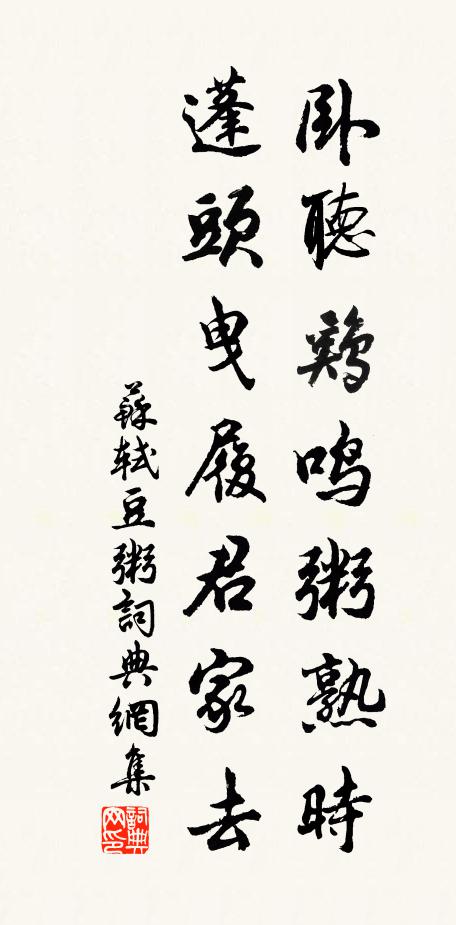 卧聽鷄鳴粥熟時
蓬頭曳履君家去
蘇軾豆粥詞典網集
詞典网印